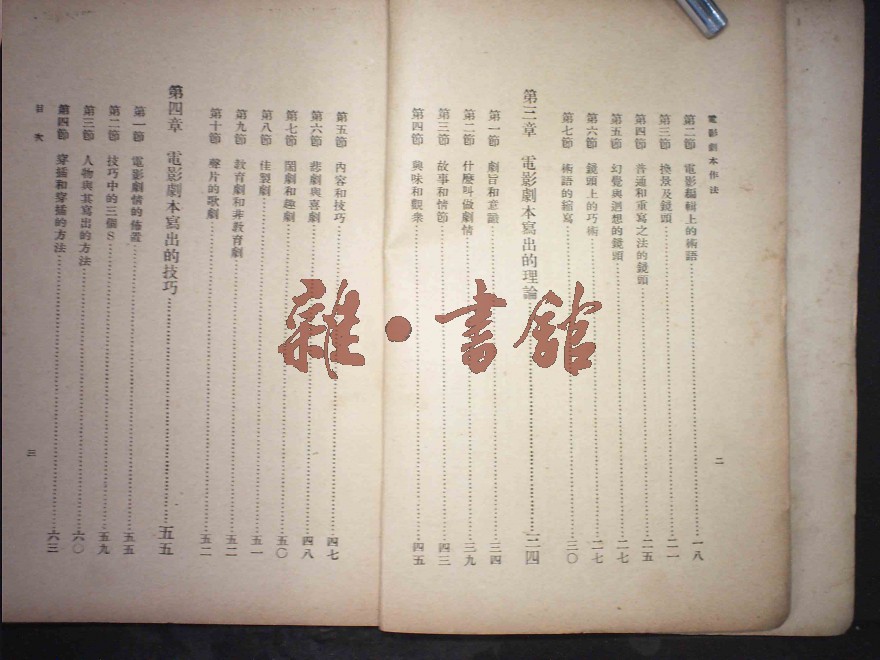 電影劇本作法
第二節 電影編輯上的術語 一八
第三節 換景及鏡頭 二一
第四節 普通和重寫之法的鏡頭 二五
第五節 幻覺與迴想的鏡頭 二七
第六節 鏡頭上的巧術 二七
第七節 術語的縮寫 三〇
第三章 電影劇本寫出的理論 三四
第一節 劇旨和意識 三四
第二節 什麼叫做劇情 三九
第三節 故事和情節 四三
第四節 興味和觀衆 四五
二
第五節 內容和技巧 四七
第六節 悲劇與喜劇 四八
第七節 鬧劇和趣劇 五〇
第八節 佳製劇 五一
第九節 教育劇和非教育劇 五二
第十節 聲片的歌劇 五二
第四章 電影劇本寫出的技巧 五五
第一節 電影劇情的佈置 五五
第二節 技巧中的三個S 五九
第三節 人物與其寫出的方法 六〇
第四節 穿插和穿插的方法 六三
目次
三
雜·書館